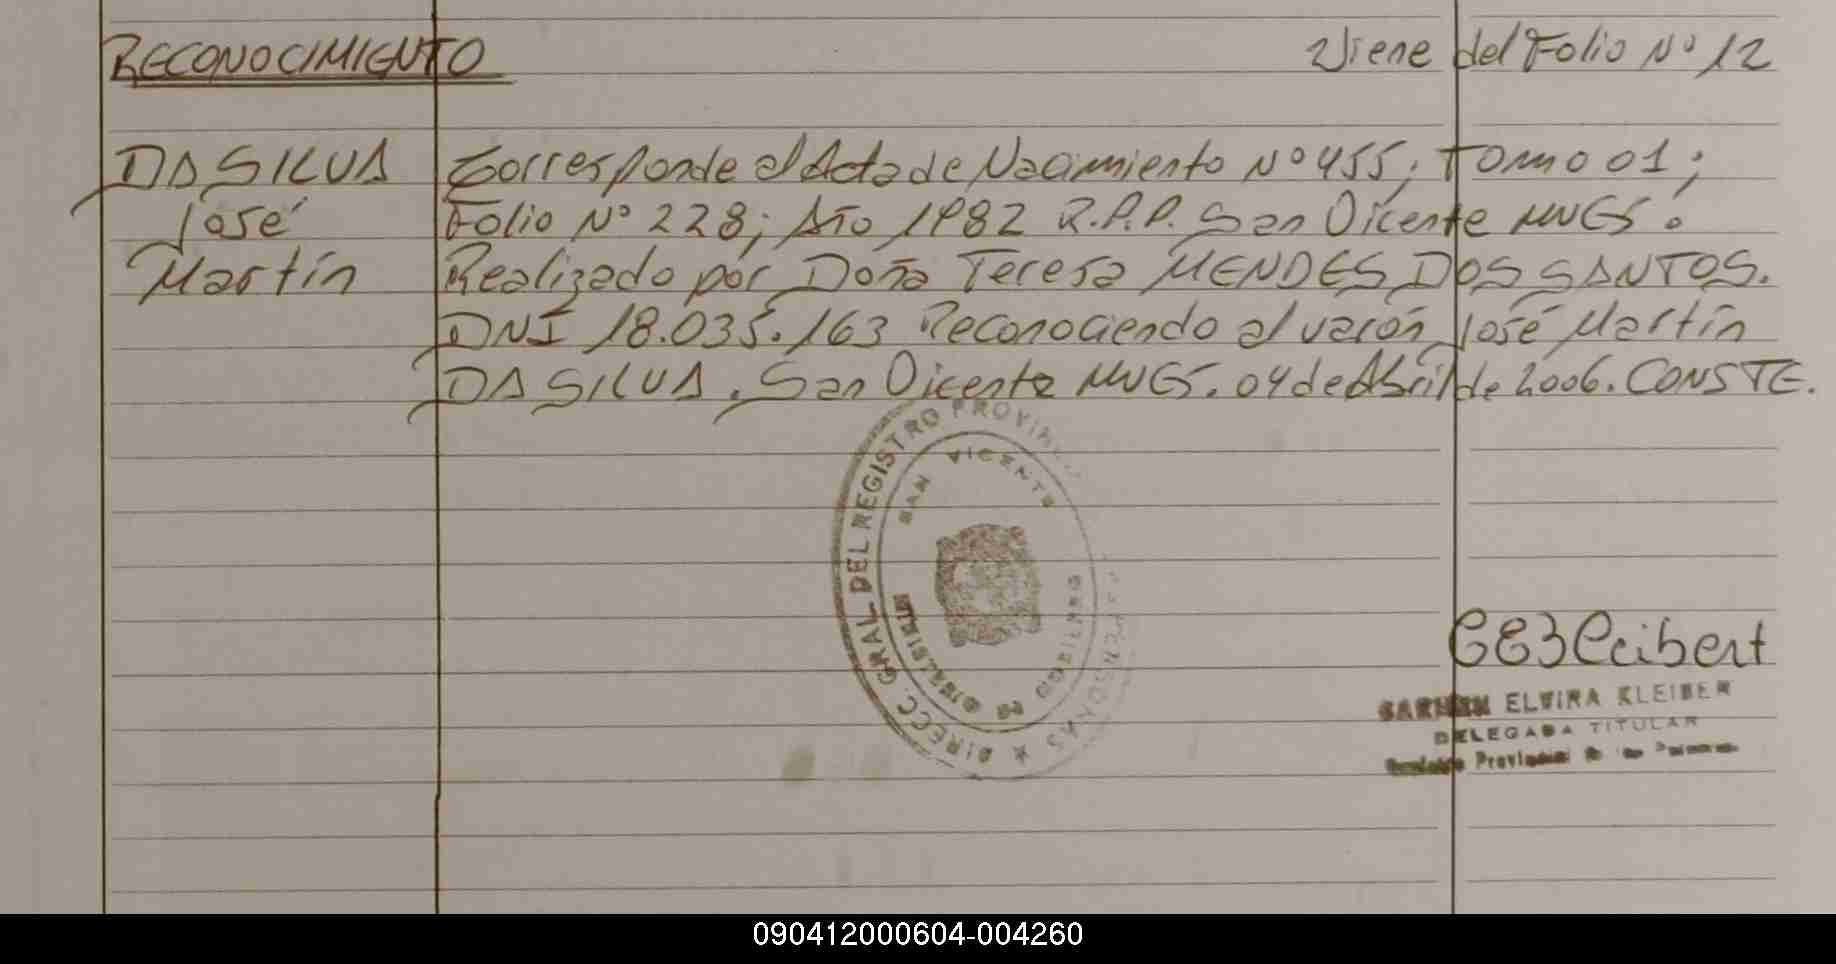 RECONOCIMIENTO Viene del Folio Nº 12
DA SILVA Corresponde al Acta de Nacimiento Nº 455; Tomo 01;
José Folio Nº 228; Año 1982 R.P.P. San Vicente MNES.
Martín Realizado por Doña Teresa MENDES DOS SANTOS.
DNI 18.035.163 Reconociendo al varón José Martín
DA SILVA. San Vicente MNES. 04 de Abril de 2006. CONSTE.
DIRECC. GRAL DEL REGISTRO PROVINCIAL
SAN VICENTE
MISIONES
CARMEN ELVIRA KLEIBER
DELEGADA TITULAR
Provincial
090412000604-004260